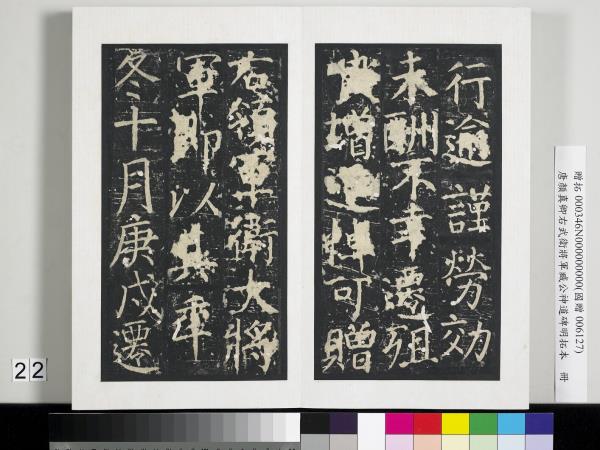 行逾謹勞効
未酬不幸遷殂
增追悼可贈
右領軍衛大將
軍即以其年
冬十月庚戌遷
贈拓 000346N000000000(國贈 006127)
唐顏真卿右武衛將軍臧公神道碑明拓本 冊
22